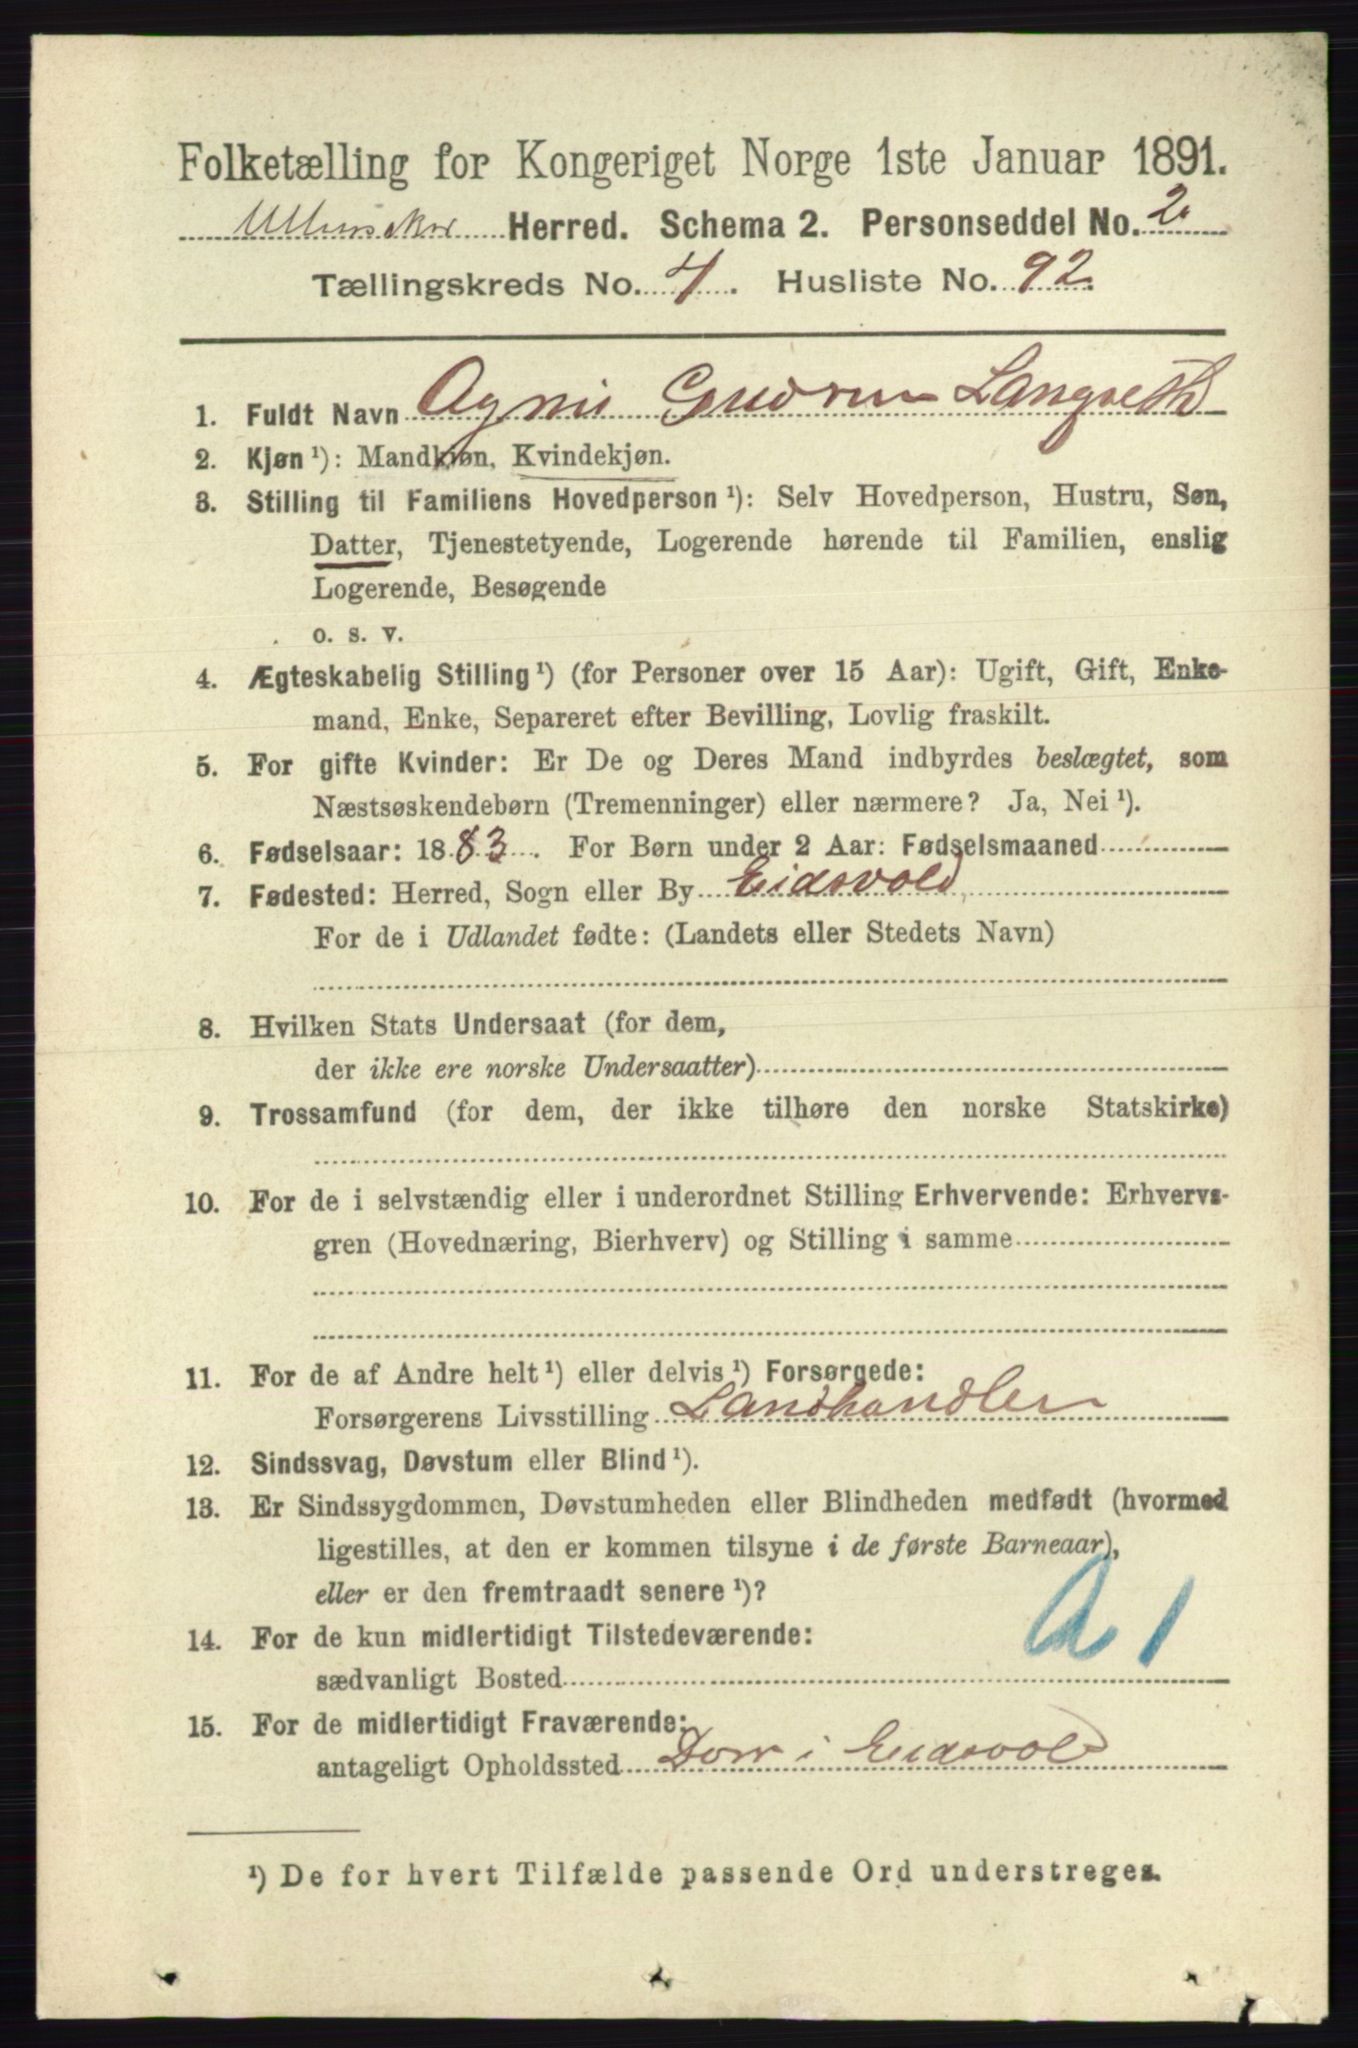 Folketælling for Kongeriget Norge 1ste Januar 1891.
Ullensaker Herred. Schema 2. Personseddel No. 2.
Tællingskreds No. 4. Husliste No. 92.
1. Fuldt Navn Agnis Gudrun Langseth
2. Kjøn ¹): Mandkjøn, Kvindekjøn.
3. Stilling til Familiens Hovedperson ¹): Selv Hovedperson, Hustru, Søn,
Datter, Tjenestetyende, Logerende hørende til Familien, enslig
Logerende, Besøgende
o. s. v.
4. Ægteskabelig Stilling ¹) (for Personer over 15 Aar): Ugift, Gift, Enke-
mand, Enke, Separeret efter Bevilling, Lovlig fraskilt.
5. For gifte Kvinder: Er De og Deres Mand indbyrdes beslægtet, som
Næstsøskendebørn (Tremenninger) eller nærmere? Ja, Nei ¹).
6. Fødselsaar: 1883. For Børn under 2 Aar: Fødselsmaaned
7. Fødested: Herred, Sogn eller By Eidsvold
For de i Udlandet fødte: (Landets eller Stedets Navn)
8. Hvilken Stats Undersaat (for dem,
der ikke ere norske Undersaatter)
9. Trossamfund (for dem, der ikke tilhøre den norske Statskirke)
10. For de i selvstændig eller i underordnet Stilling Erhvervende: Erhvervs-
gren (Hovednæring, Bierhverv) og Stilling i samme
11. For de af Andre helt ¹) eller delvis ¹) Forsørgede:
Forsørgerens Livsstilling Landhandler
12. Sindssvag, Døvstum eller Blind ¹).
13. Er Sindssygdommen, Døvstumheden eller Blindheden medfødt (hvormed
ligestilles, at den er kommen tilsyne i de første Barneaar),
eller er den fremtraadt senere ¹)?
A 1
14. For de kun midlertidigt Tilstedeværende:
sædvanligt Bosted
15. For de midlertidigt Fraværende:
antageligt Opholdssted i Eidsvold
¹) De for hvert Tilfælde passende Ord understreges.